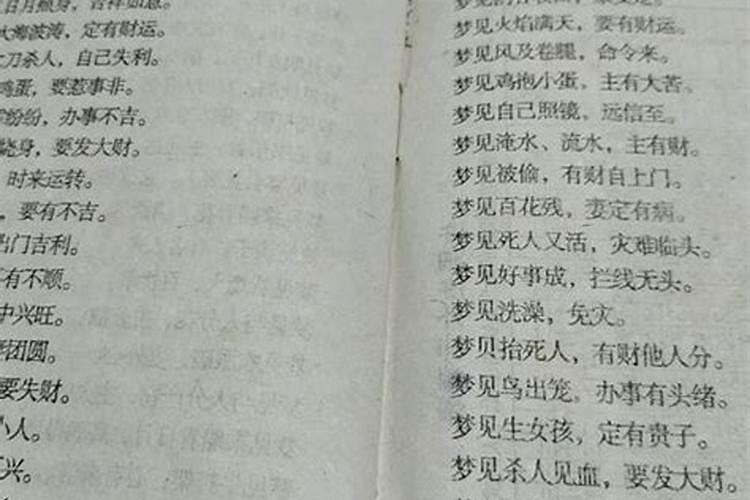 日月照身，吉祥如意。
大海波涛，定有财运。
刀杀人，自己失利。
鸡蛋，要惹事非。
纷纷，办事不吉。
烧身，要发大财。
，时来运转。
，要有不吉。
出门吉利。
有不顺。
中兴旺。
团圆。
要失财。
小人。
兴。
梦见火焰满天，要有财运。
梦见风及卷腿，命令来。
梦见鸡抱小蛋，主有大苦。
梦见自己照镜，远信至。
梦见淹水、流水，主有财。
梦见被偷，有财自上门。
梦见百花残，妻定有病。
梦见死人又活，灾难临头。
梦见好事成，拦线无头。
梦见洗澡，免灾。
梦贝抬死人，有财他人分。
梦见鸟出笼，办事有头绪。
梦见生女孩，定有贵子。
梦见杀人见血，要发大财。